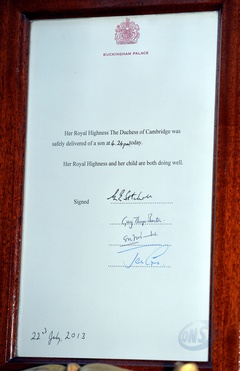 BUCKINGHAM PALACE
Her Royal Highness The Duchess of Cambridge was
safely delivered of a son at 4.24pm today.
Her Royal Highness and her child are both doing well.
Signed
22nd July, 2013